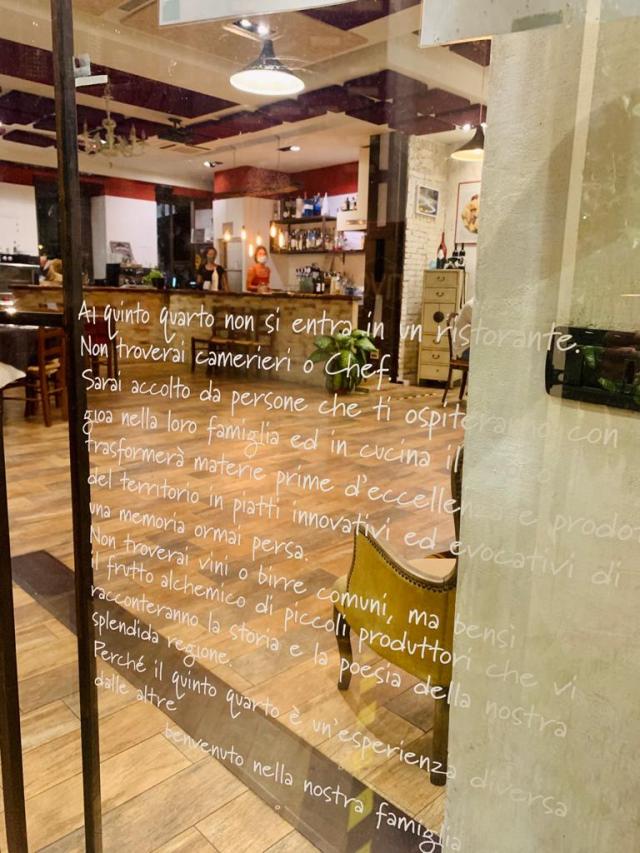 Al quinto quarto non si entra in un ristorante.
Non troverai camerieri o Chef
Sarai accolto da persone che ti ospiteranno con
gioa nella loro famiglia ed in cucina il
trasformerà materie prime d'eccellenza e prodo
del territorio in piatti innovativi ed evocativi di
una memoria ormai persa.
Non troverai vini o birre comuni, ma bensi
il frutto alchemico di piccoli produttori che vi
racconteranno la storia e la poesia della nostra
splendida regione.
Perché il quinto quarto è un'esperienza diversa
dalle altre
benvenuto nella nostra famiglia